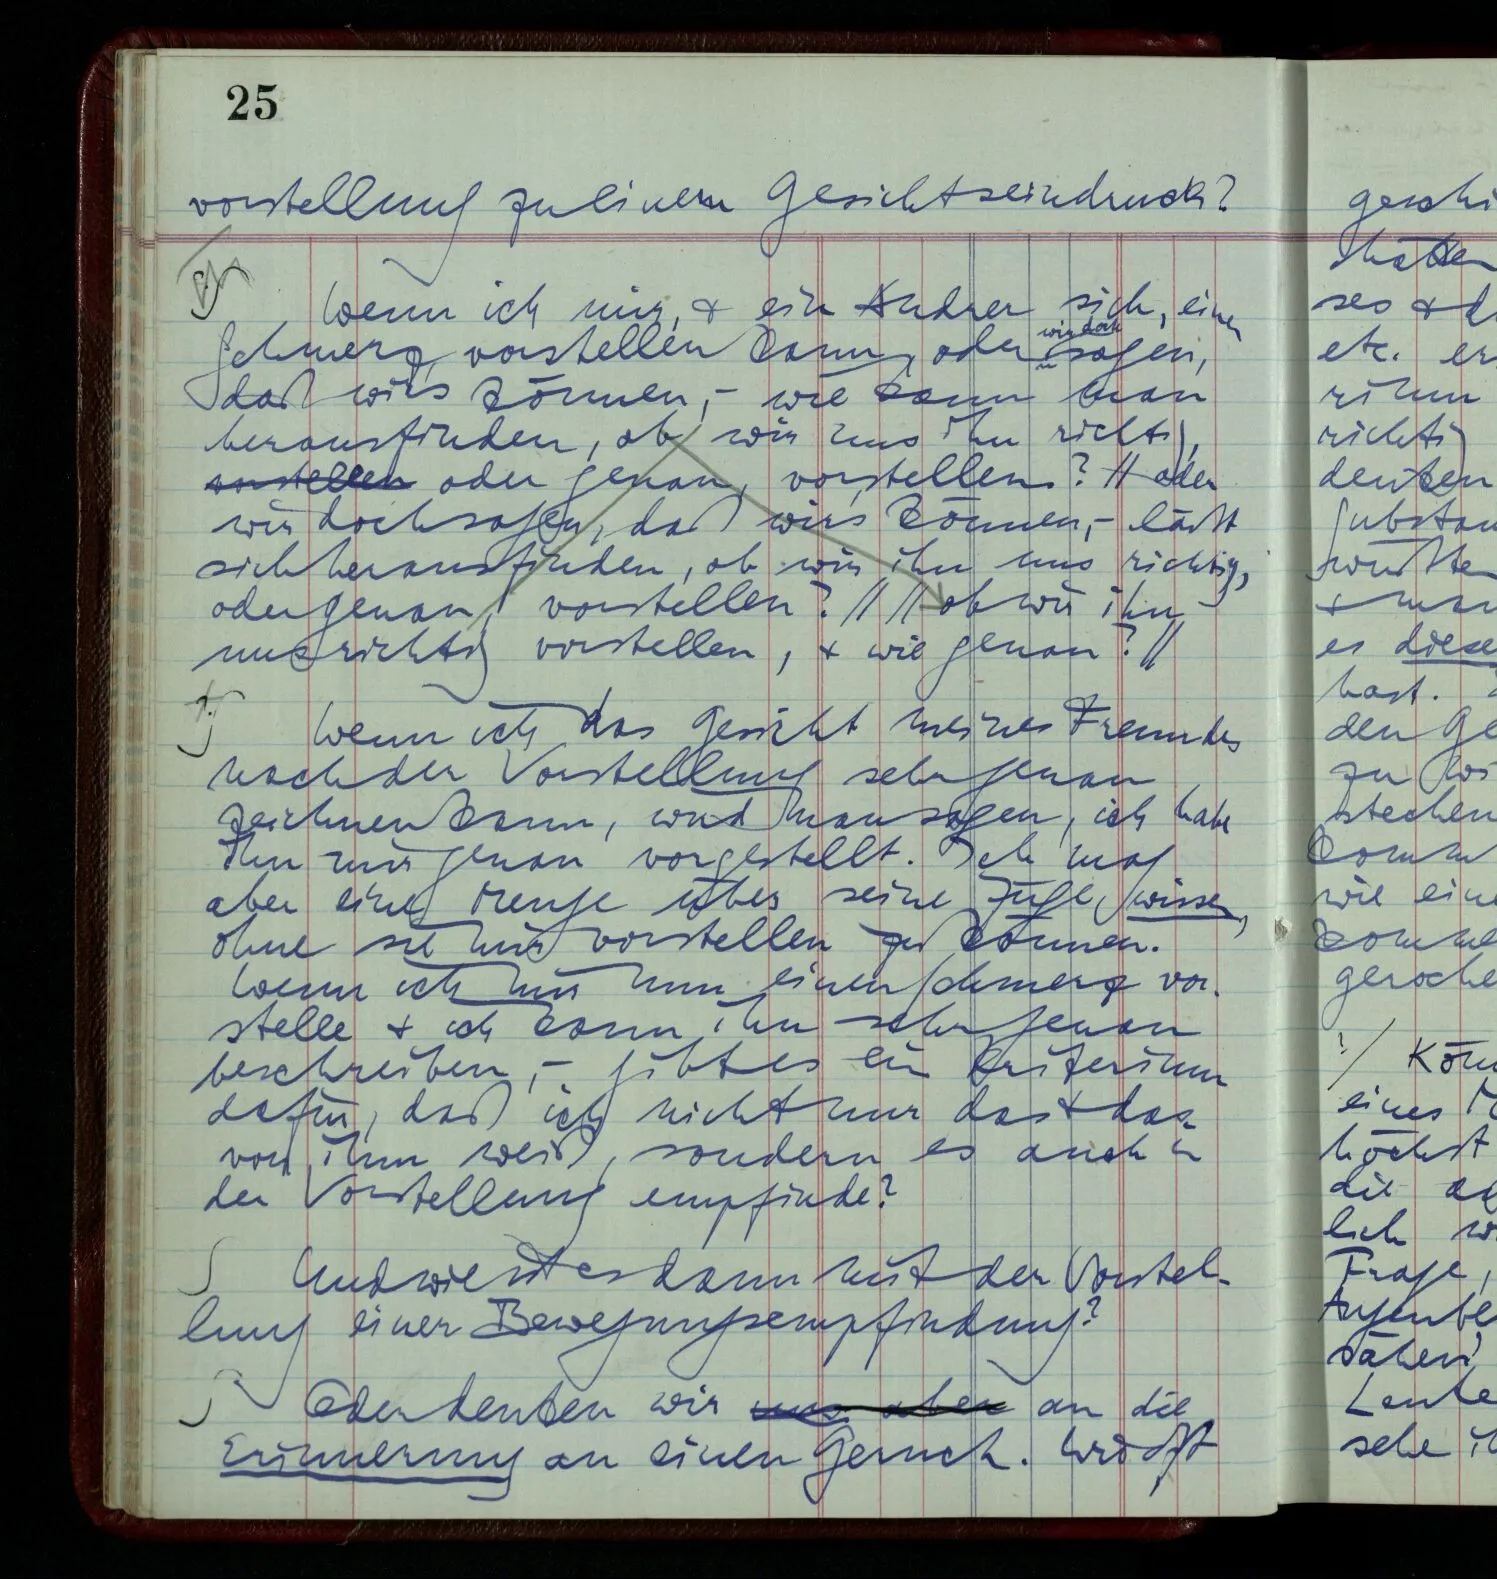 25
vorstellung zu einem Gesichtseindruck?
Wenn ich mir, & ein Andrer sich, einen
Schmerz vorstellen kann, oder wir doch sagen,
daß wir's können, – wie kann man
herausfinden, ob wir uns ihn richtig,
vorstellen oder genau, vorstellen? // oder
wir doch sagen, daß wir's können, – läßt
sich herausfinden, ob wir ihn uns richtig,
oder genau, vorstellen? // // ob wir ihn
uns richtig vorstellen, & wie genau? //
Wenn ich das Gesicht meines Freundes
nach der Vorstellung sehr genau
zeichnen kann, wird man sagen, ich habe
ihn mir genau vorgestellt. Ich mag
aber eine Menge über seine Züge wissen,
ohne sie mir vorstellen zu können.
Wenn ich mir nun einen Schmerz vor-
stelle & ich kann ihn sehr genau
beschreiben, – gibt es ein Kriterium
dafür, daß ich nicht nur das & das
von ihm weiß, sondern es auch in
der Vorstellung empfinde?
Und wie ist es dann mit der Vorstel-
lung einer Bewegungsempfindung?
Oder denken wir uns aber an die
Erinnerung an einen Geruch.
geschi
hätten
ses & d
etc. er
richtig
denken
Substan
wüßten
& man
es diese
hast.
den Ge
zu
stechen
Komm
wie eine
komme
geroche
Kön
eines
höchst
die
lich
Frage,
Augenbe
Leute
sehe ih